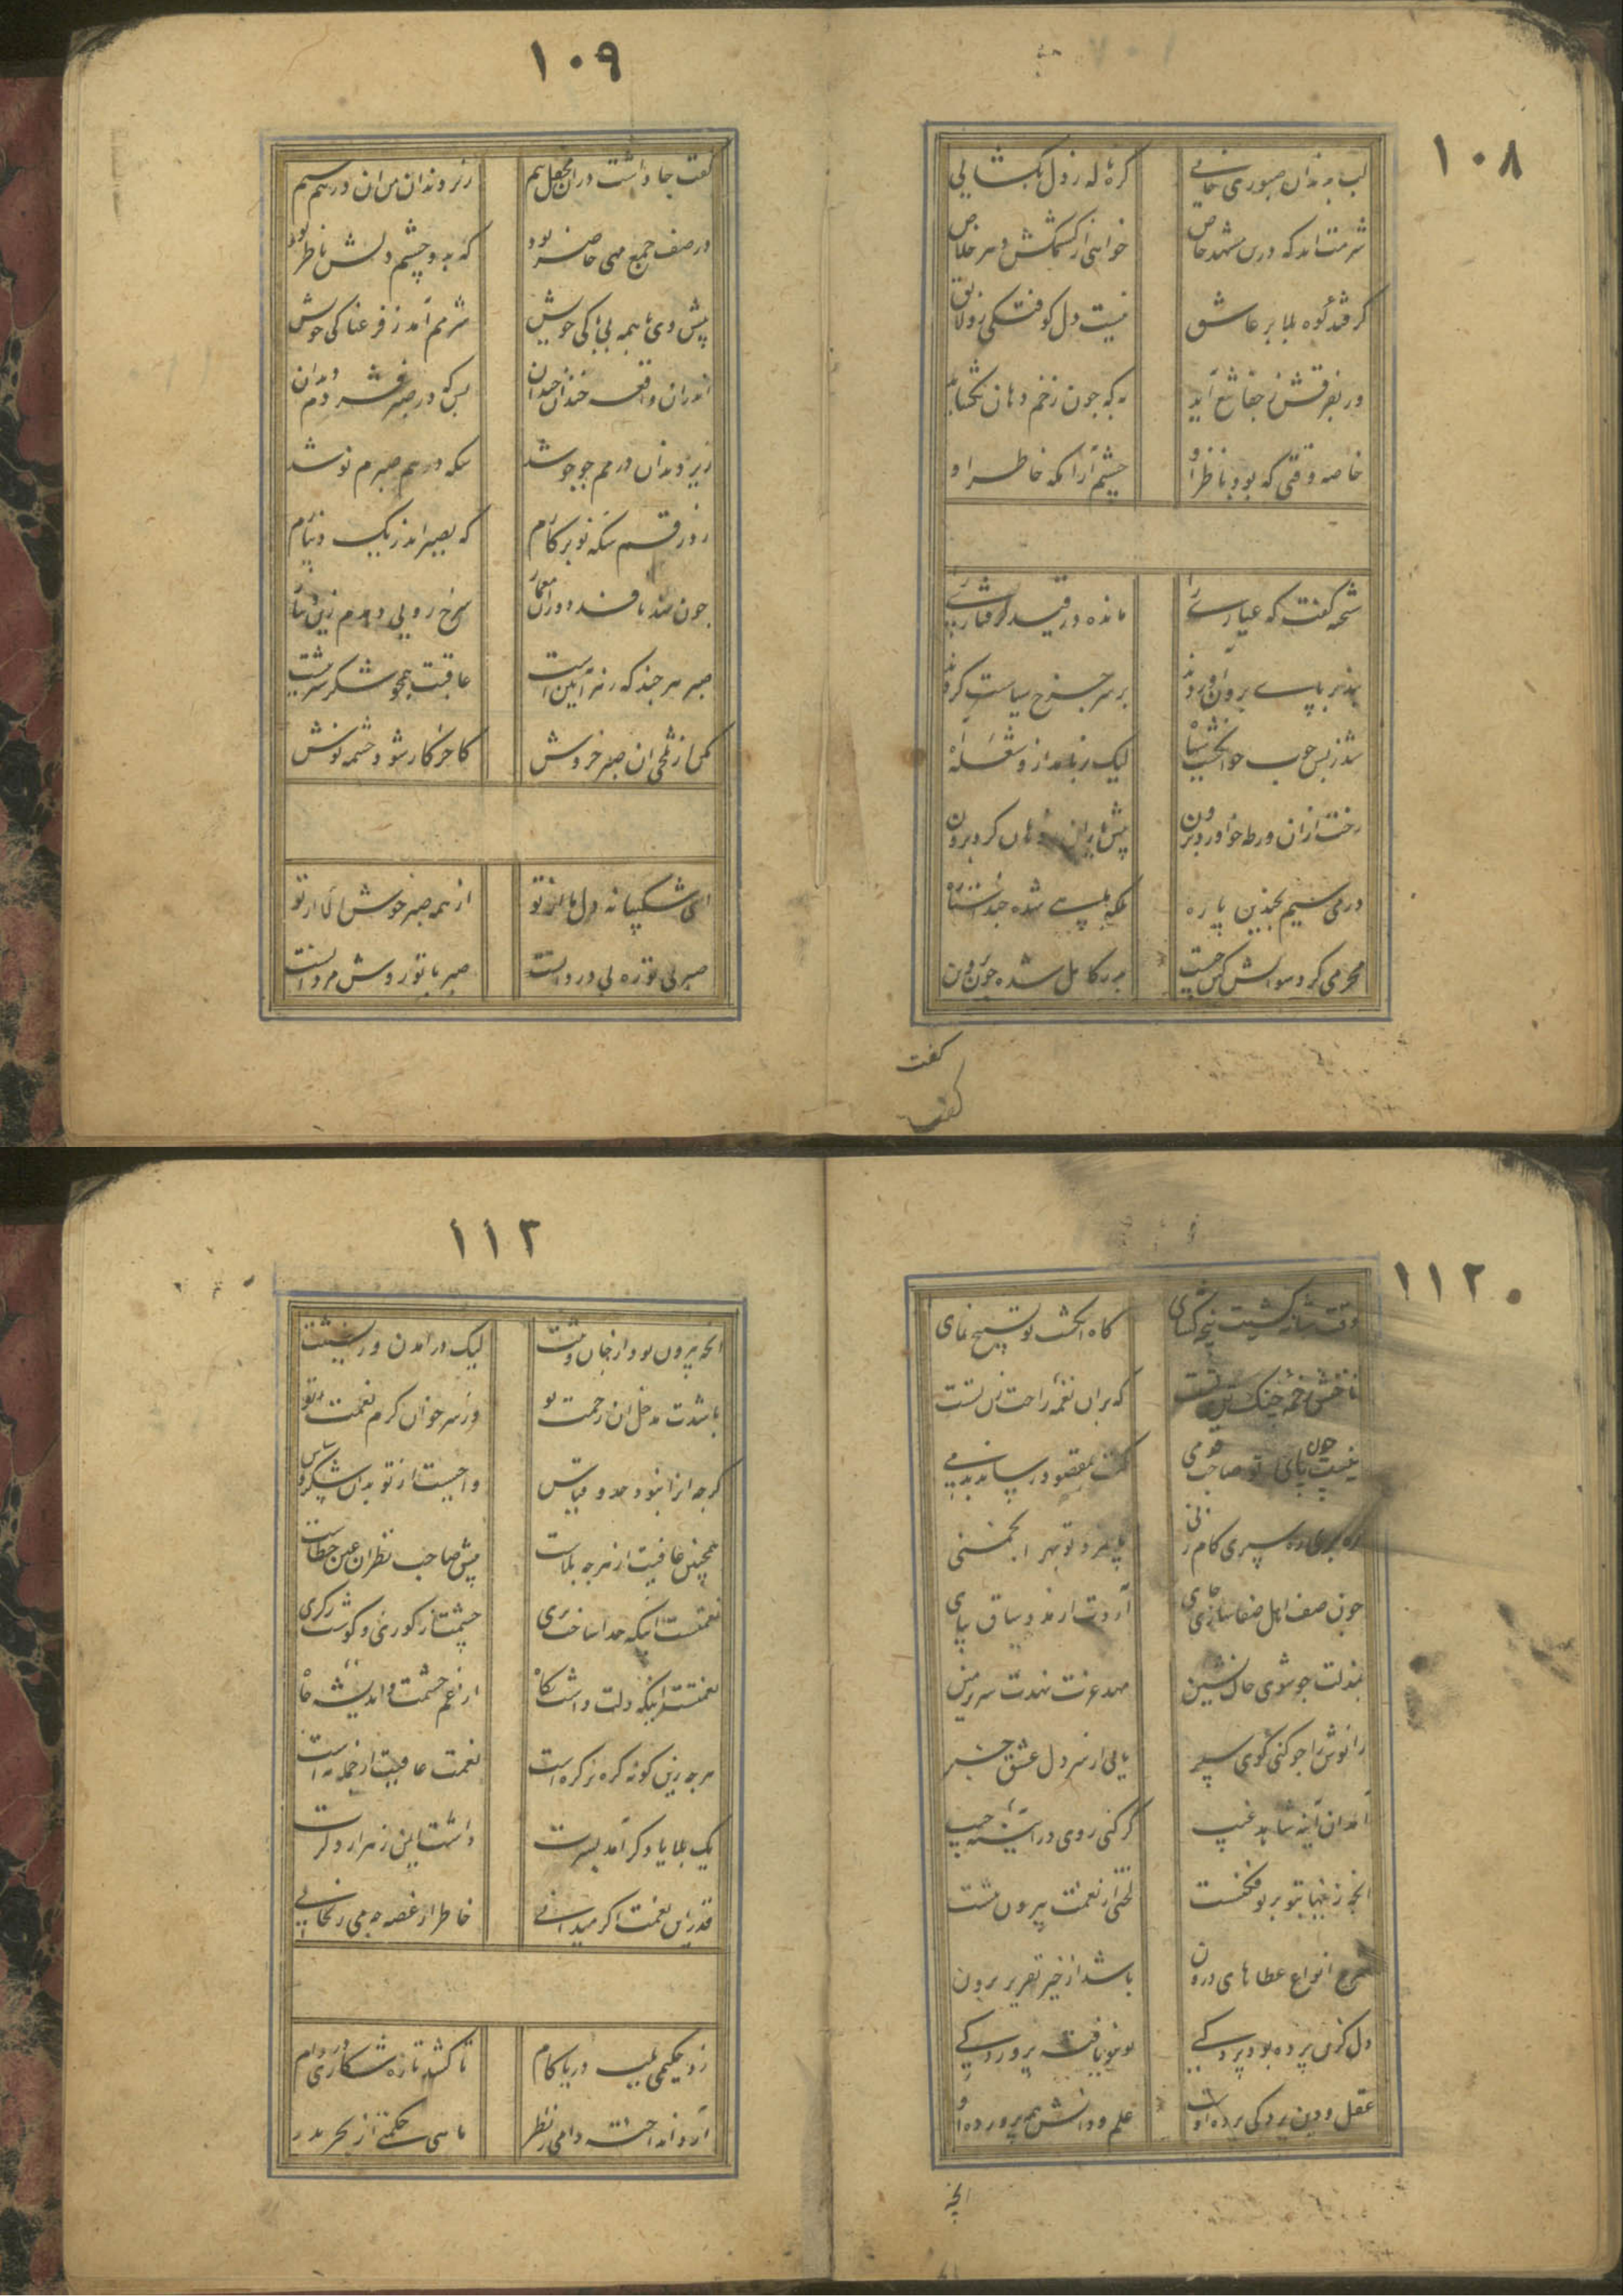 ١٠٨
لب به دندان صبوری خایی گره از دل بگشایی
شرمت اید که درین مشهد خاص خواهی از کشمکش دهر خلاص
گر فتد کوه بلا بر عاشق نیست دل کوفتگی زو لایق
ور بفرقش ز جفا تیغ آید به که چون زخم دهان نگشاید
خاصه وقتی که بود ناظر او چشم آرامگه خاطر او
شحنه گفت که عیاری را مانده در قید گرفتاری را
بند بر پای برون اوردند بر سر جمع سیاست کردند
شد ز بس چوب چو انگشت سیاه لیک بر نامد ازو شعله آه
رخت ازان ورطه چو اورد برون پیش یاران ز دهان کرد برون
درمی سیم بچندین پاره بلکه ماهی شده چند استاره
محرمی کرد سوالش کین چیست بدر کامل شده چون پروین
گفت
١٠٩
گفت جا داشت دران محفل بیم زیر دندان من ان درهم سیم
در صف جمع مهی حاضر بود که بدو چشم دلش ناظر بود
پیش وی با همه بی باکی خویش شرمم آمد ز فزعناکی خویش
اندران واقعه خندان خندان بس که در صبر فشردم دندان
زیر دندان درمم جو جو شد سکه درهم صبرم نو شد
زد رقم سکه نو بر کارم که بصبر اندر یک دینارم
چون نهد ناقد دوران معیار سرخ رویی دهدم زین دینار
صبر هر چند که زهر آیین است عاقبت همچو شکر شیرینست
مکن از تلخی ان صبر خروش کاخر کار شود چشمه نوش
ای شکیبا نه دل ما از تو از همه صبر خوش الا از تو
صبر بی تو ره بی دردانست صبر با تو روش مردانست
١١٢
وقت شانه کشیت پنجه گشای گاه انگشت تو تسبیح نمای
ناخنش زخمه چنگ که بران نغمه راحت
نیست چون پای تو صاحب قدمی کت بمقصود رساند بدمی
ره بری ره سپری کام زنی پی نرود تو بهر انجمنی
چون صف اهل صفا سازی جای آردت ارمند و ساق بپای
بذلت چو شوی خاک نشین مهد عزت نهدت سر زمین
زانوش را چو کنی کوی سپر یابی از سر دل عشق خبر
آمد ان آینه شاهد غیب گر کنی روی در آیینه جیب
انچه زینها بتو بر تو فکنست لختی از نعمت بیرون منست
شرح انواع عطاهای درون باشد از خیر تقریر برون
دل کزین پرده بود پردگیی نو بنو یافته پروردگیی
عقل و دین پردگی پرده او علم و دانش همه پرورده او
انچه
١١٣
انچه بیرون بود از جان و تنت لیک در امدن و رفتنت
باشدت مدخل ان رحمت تو وز سر خوان کرم نعمت تو
گرچه انرا نبود حد و قیاس واجبست از تو بدان شکر و سپاس
همچنین عافیت از هر چه بلاست پیش صاحب نظران عین عطاست
نعمتست اینکه خدا ساخت بری چشمت از کوری و گوشت ز کری
نعمتست اینکه دلت داشت نگاه از غم حشمت و اندیشه جاه
هر چه زین گونه گره بر گره است نعمت عافیت از جمله به است
یک بلا یاد گر آمد بسرت داشت ایمن ز هزار دگرت
قدر این نعمت اگر میدانی خاطر از غصه چه می رنجانی
زد حکیمی بلب دریا گام تا کشد تازه شکاری در دام
آرد انداخته دامی ز نظر ماهی حکمتی از بحر بدر